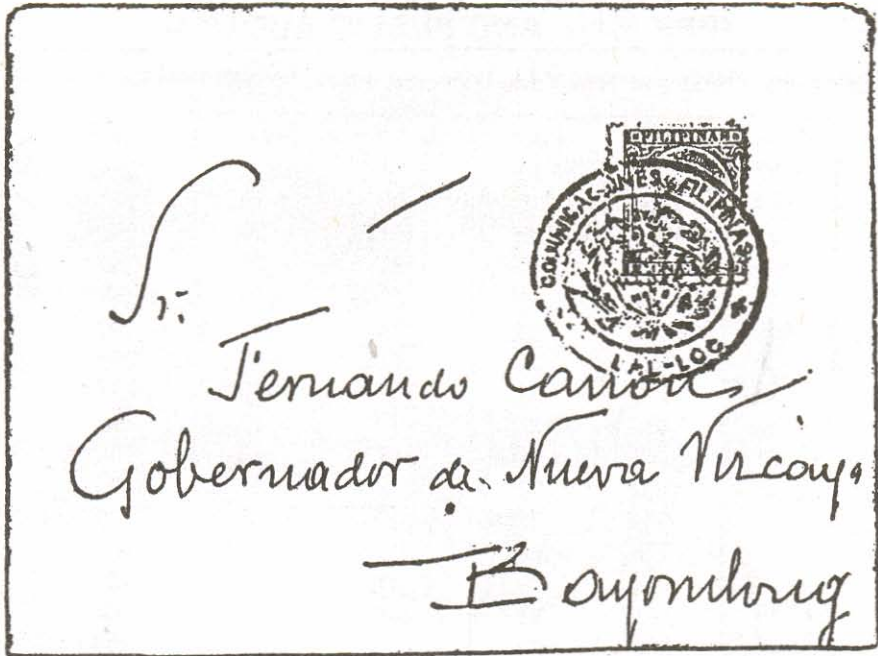 FILIPINAS
COMUNICACIONES FILIPINAS
LAL-LOC
Sr.
Fernando Canon
Gobernador de Nueva Vizcaya
Bayombong